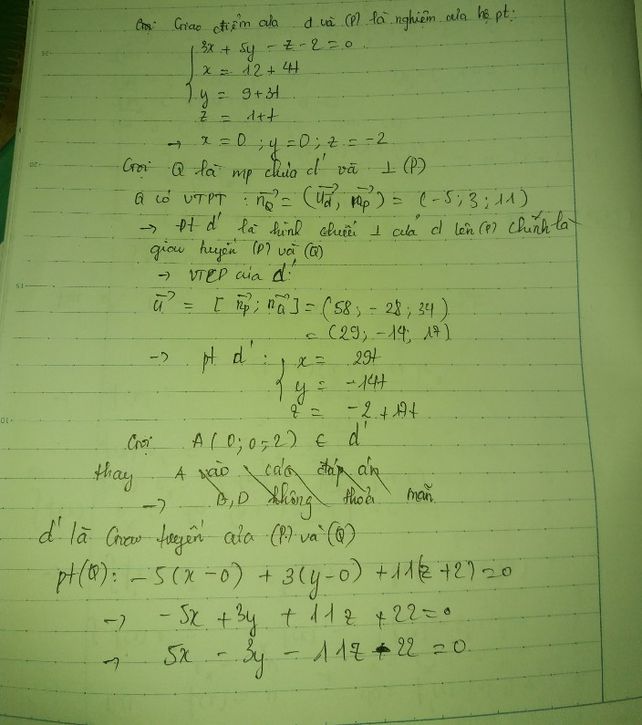 Gọi Giao điểm của d và (P) là nghiệm của hệ pt:
3x + 5y - z - 2 = 0
x = 12 + 4t
y = 9 + 3t
z = 1 + t
→ x = 0 ; y = 0 ; z = -2
Gọi Q là mp chứa d' và ⊥ (P)
Q có VTPT : n_Q = (u_d, n_p) = (-5; 3; 11)
→ pt d' là hình chiếu ⊥ của d lên (P) chính là
giao tuyến (P) và (Q)
→ VTCP của d'
u = [n_p; n_Q] = (58; -28; 34)
= (29; -14; 17)
→ pt d' : x = 29t
y = -14t
z = -2 + 17t
Gọi A(0; 0; 2) ∈ d'
thay A vào các đáp án
→ B, D không thoả mãn
d' là Giao tuyến của (P) và (Q)
pt(Q): -5(x-0) + 3(y-0) + 11(z+2) = 0
→ -5x + 3y + 11z + 22 = 0
→ 5x - 3y - 11z - 22 = 0